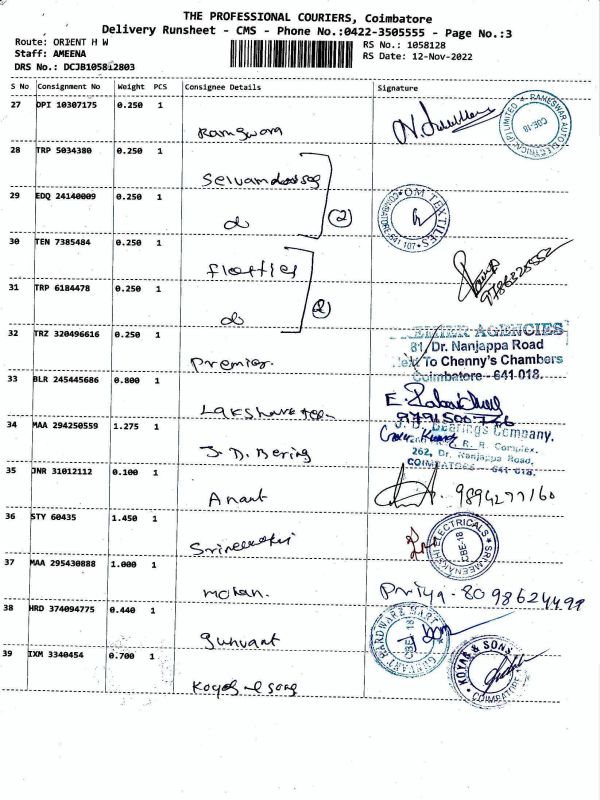 THE PROFESSIONAL COURIERS, Coimbatore
Delivery Runsheet - CMS - Phone No.:0422-3505555 - Page No.:3
Route: ORIENT H W
RS No.: 1058128
Staff: AMEENA
RS Date: 12-Nov-2022
DRS No.: DCJB1058128O3
S No Consignment No Weight PCS Consignee Details Signature
27 OPI 10307175 0.250 1
RAMESWAR AUTO ELECTRICAL (P) LIMITED
CBE-18
28 TRP 5034380 0.250 1
29 EDQ 24140009 0.250 1
do (2)
OM TEXTILES
COIMBATORE-641 107
30 TEN 7385484 0.250 1
9786328552
31 TRP 6184478 0.250 1
do (2)
32 TRZ 320496616 0.250 1
Premier.
PREMIER AGENCIES
81/Dr. Nanjappa Road
Next To Chenny's Chambers
Coimbatore - 641-018.
33 BLR 245445686 0.800 1
34 MAA 294250559 1.275 1
J. D. Bering
Bearings Company,
R. R. Complex,
262, Dr. Nanjappa Road,
COIMBATORE - 641 018.
35 JNR 31012112 0.100 1
Anant
9894277160
36 STY 60435 1.450 1
SRI MEENAKSHI ELECTRICALS
CBE-18
37 MAA 295430888 1.000 1
Mohan.
Priya - 8098624499
38 HRD 374094775 0.440 1
gunvant
GUNVANT HARDWARE MART
CBE-18
39 IXM 3340454 0.700 1
Koyas & Sons
KOYAS & SONS
COIMBATORE